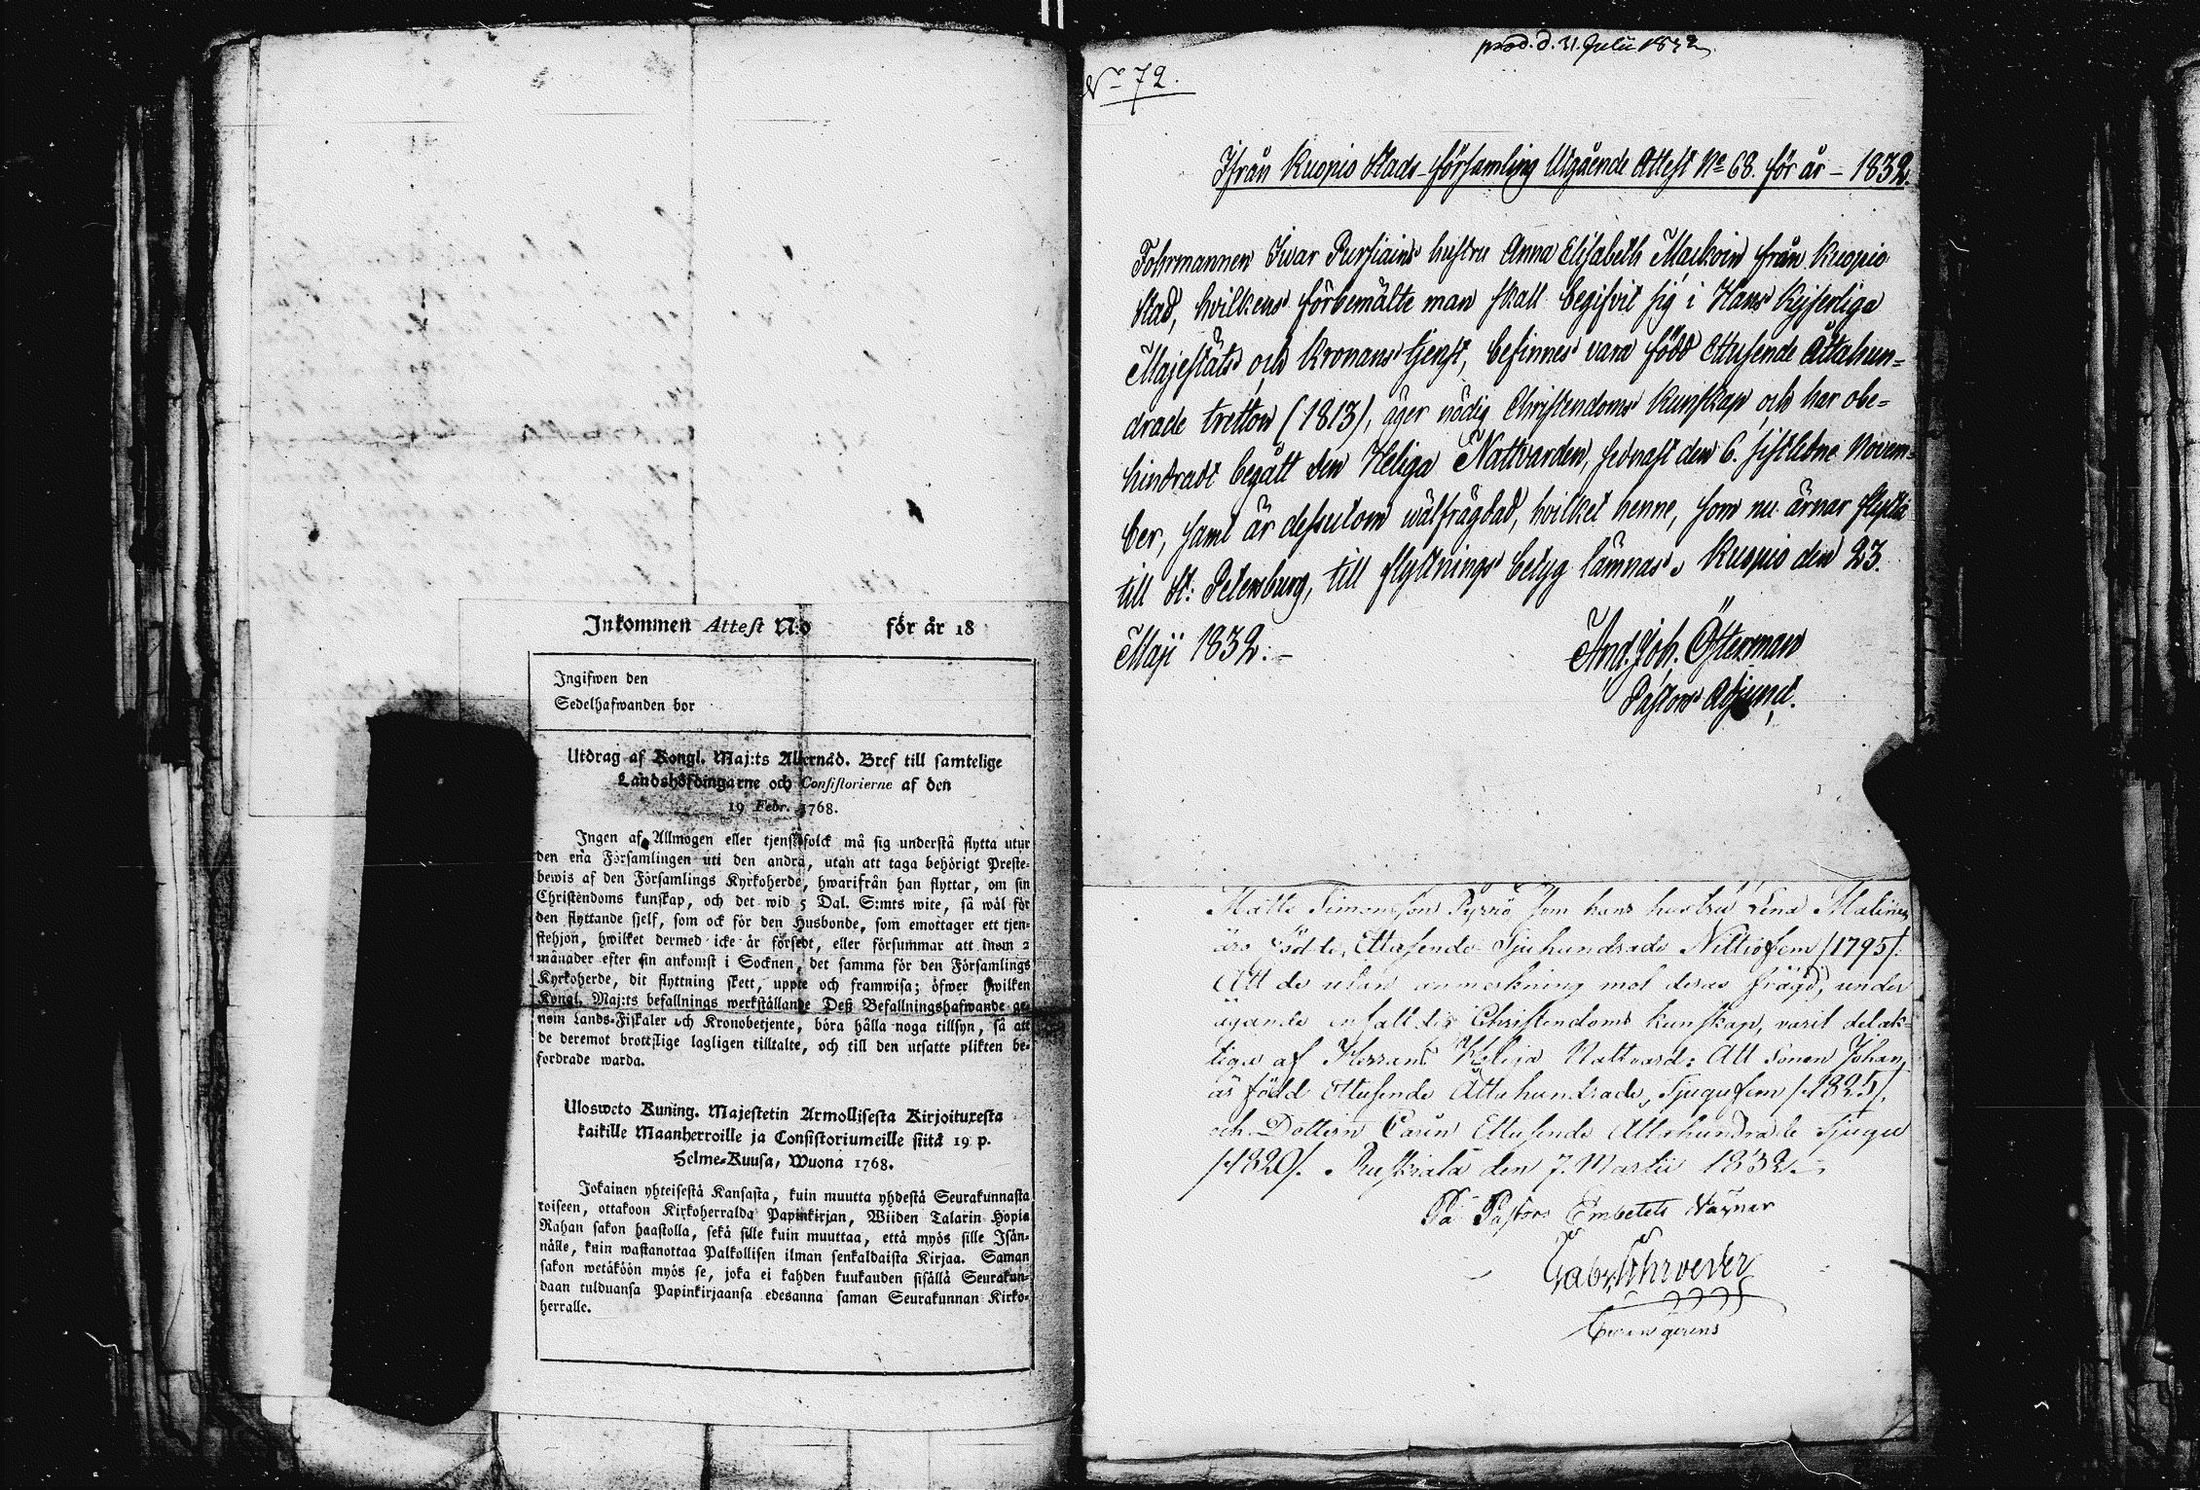 Inkommen Attest N:o för år 18
Ingifwen den
Sedelhafwanden bor
Utdrag af Kongl. Maj:ts Allernåd. Bref till samtelige
Landshöfdingarne och Consistorierne af den
19 Febr. 1768.
Ingen af Allmogen eller tjenstefolck må sig understå flytta utur
den ena Församlingen uti den andra, utan att taga behörigt Preste-
bewis af den Församlings Kyrkoherde, hwarifrån han flyttar, om sin
Christendoms kunskap, och det wid 5 Dal. S:mts wite, så wäl för
den flyttande sjelf, som ock för den Husbonde, som emottager ett tjen-
stehjon, hwilket dermed icke är försedt, eller försummar att inom 2
månader efter sin ankomst i Socknen, det samma för den Församlings
Kyrkoherde, dit flyttning skett, uppte och framwisa; öfwer hwilken
Kongl. Maj:ts befallnings werkställande Deß Befallningshafwande ge-
nom Lands-Fiskaler och Kronobetjente, böra hålla noga tillsyn, så att
de deremot brottslige lagligen tilltalte, och till den utsatte plikten be-
fordrade warda.
Ulosweto Kuning. Majestetin Armollisesta Kirjoituxesta
kaikille Maanherroille ja Consistoriumeille siitä 19 p.
Helme-Kuusa, Wuona 1768.
Jokainen yhteisestä Kansasta, kuin muutta yhdestä Seurakunnasta
toiseen, ottakoon Kirkoherralda Papinkirjan, Wiiden Talarin Hopia
Rahan sakon haastolla, sekä sille kuin muuttaa, että myös sille Isän-
nälle, kuin wastanottaa Palkollisen ilman senkaldaista Kirjaa. Saman
sakon wetäköön myös se, joka ei kahden kuukauden sisällä Seurakun-
daan tulduansa Papinkirjaansa edesanna saman Seurakunnan Kirko-
herralle.
prod. d. 31. Julii 1832
No 72.
Ifrån Kuopio Stads-församling Utgående Attest No 68. för år - 1832.
Fohrmannen Iwar Pursiains hustru Anna Elisabeth Maikoin från Kuopio
stad, hvilkens förbemälte man skall begifvit sig i Hans Kejserliga
Majestäts och Kronans tjenst, befinnes vara född Ettusende Åttahun-
drade tretton (1813), äger nödig Christendoms kunskap och har obe-
hindradt begått den Heliga Nattvarden, sednast den 6. sistledne Novem-
ber, samt är dessutom wälfrägdad, hvilket henne, som nu ärnar flytta
till St: Petersburg, till flyttnings betyg lämnas. Kuopio den 23.
Maji 1832.-
And. Joh. Österman
Pastors Adjunct.
Matts Simonsson Pyrrö som hans hustru Lena Malinen
äro födde, Ettusende Sjuhundrade Nittiofem /1795/.
Att de utan anmerkning mot deras frägd, under
ägande enfaldig Christendoms kunskap, varit delak-
tiga af Herrans Heliga Nattvard: Att Sonen Johan,
är född Ettusende Åttahundrade, Tjugufem /1825/.
och Dottern Carin Ettusende Åttahundrade Tjugu
/1820/. Ruskiala den 7. Martii 1832.
På Pastors Embetets Vägnar
Gabr. Schroeder